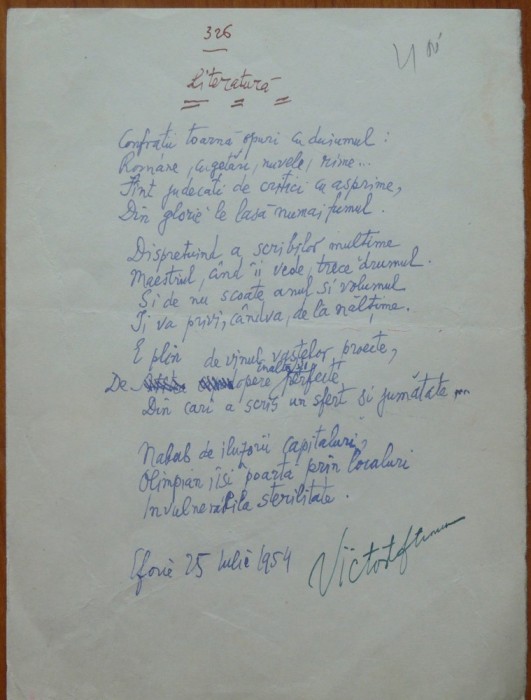 326
Literatură
Confrații toarnă opuri cu duiumul:
Romane, cugetări, nuvele, rime...
Sînt judecați de critici cu asprime,
Din glorie le lasă numai fumul.
Disprețuind a scribilor mulțime
Maestrul, când îi vede, trece drumul.
Și de nu scoate anul și volumul
Îi va privi, cândva, de la nălțime.
E plin de vinul vastelor proecte,
De opere inalte și perfecte
Din cari a scris un sfert și jumătate...
Nabab de iluzorii capitaluri,
Olimpian, iși poartă prin localuri
Invulnerabila sterilitate.
Eforie 25 Iulie 1954
Victor Eftimiu